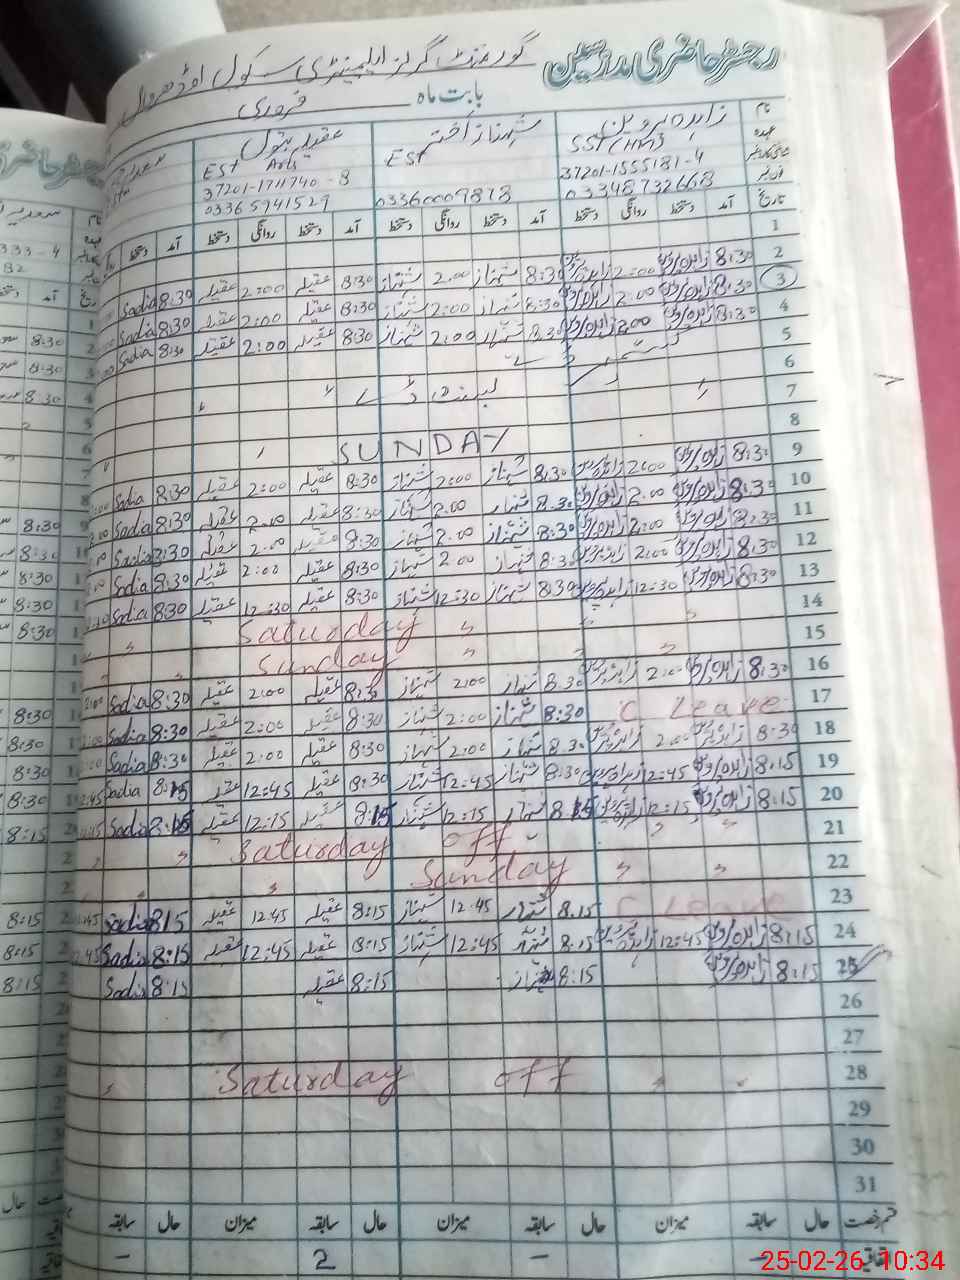 رجسٹر حاضری مدرسین گورنمنٹ گرلز ایلیمنٹری سکول اوڈھروال
بابت ماہ فروری
نام زاہدہ پروین شہناز اختر عقیلہ بتول
عہدہ SST EST EST Arts
37201-1555181-4 37201-1711740-8
03348732668 03360009878 03365941529
تاریخ آمد دستخط روانگی دستخط آمد دستخط روانگی دستخط آمد دستخط روانگی دستخط آمد دستخط
1
2 8:30 زاہدہ پروین 2:00 زاہدہ پروین 8:30 شہناز 2:00 شہناز 8:30 عقیلہ 2:00 عقیلہ 8:30 Sadia
3 8:30 زاہدہ پروین 2:00 زاہدہ پروین 8:30 شہناز 2:00 شہناز 8:30 عقیلہ 2:00 عقیلہ 8:30 Sadia
4 8:30 زاہدہ پروین 2:00 زاہدہ پروین 8:30 شہناز 2:00 شہناز 8:30 عقیلہ 2:00 عقیلہ 8:30 Sadia
5 کشمیر ڈے
6 بسنت ڈے
7
8 SUNDAY
9 8:30 زاہدہ پروین 2:00 زاہدہ پروین 8:30 شہناز 2:00 شہناز 8:30 عقیلہ 2:00 عقیلہ 8:30 Sadia
10 8:30 زاہدہ پروین 2:00 زاہدہ پروین 8:30 شہناز 2:00 شہناز 8:30 عقیلہ 2:00 عقیلہ 8:30 Sadia
11 8:30 زاہدہ پروین 2:00 زاہدہ پروین 8:30 شہناز 2:00 شہناز 8:30 عقیلہ 2:00 عقیلہ 8:30 Sadia
12 8:30 زاہدہ پروین 2:00 زاہدہ پروین 8:30 شہناز 2:00 شہناز 8:30 عقیلہ 2:00 عقیلہ 8:30 Sadia
13 8:30 زاہدہ پروین 12:30 زاہدہ پروین 8:30 شہناز 12:30 شہناز 8:30 عقیلہ 12:30 عقیلہ 8:30 Sadia
14 Saturday
15 Sunday
16 8:30 زاہدہ پروین 2:00 زاہدہ پروین 8:30 شہناز 2:00 شہناز 8:30 عقیلہ 2:00 عقیلہ 8:30 Sadia
17 C Leave 8:30 شہناز 2:00 شہناز 8:30 عقیلہ 2:00 عقیلہ 8:30 Sadia
18 8:30 زاہدہ پروین 2:00 زاہدہ پروین 8:30 شہناز 2:00 شہناز 8:30 عقیلہ 2:00 عقیلہ 8:30 Sadia
19 8:15 زاہدہ پروین 12:45 زاہدہ پروین 8:30 شہناز 12:45 شہناز 8:30 عقیلہ 12:45 عقیلہ 8:15 Sadia
20 8:15 زاہدہ پروین 12:15 زاہدہ پروین 8:15 شہناز 12:15 شہناز 8:15 عقیلہ 12:15 عقیلہ 8:15 Sadia
21 Saturday off
22 Sunday
23 C Leave 8:15 شہناز 12:45 شہناز 8:15 عقیلہ 12:45 عقیلہ 8:15 Sadia
24 8:15 زاہدہ پروین 12:45 زاہدہ پروین 8:15 شہناز 12:45 شہناز 8:15 عقیلہ 12:45 عقیلہ 8:15 Sadia
25 8:15 زاہدہ پروین 8:15 شہناز 8:15 عقیلہ 8:15 Sadia
26
27
28 Saturday off
29
30
31
قسم رخصت حال سابقہ میزان حال سابقہ میزان حال سابقہ میزان حال سابقہ
اتفاقیہ - - 2 -
25-02-26 10:34